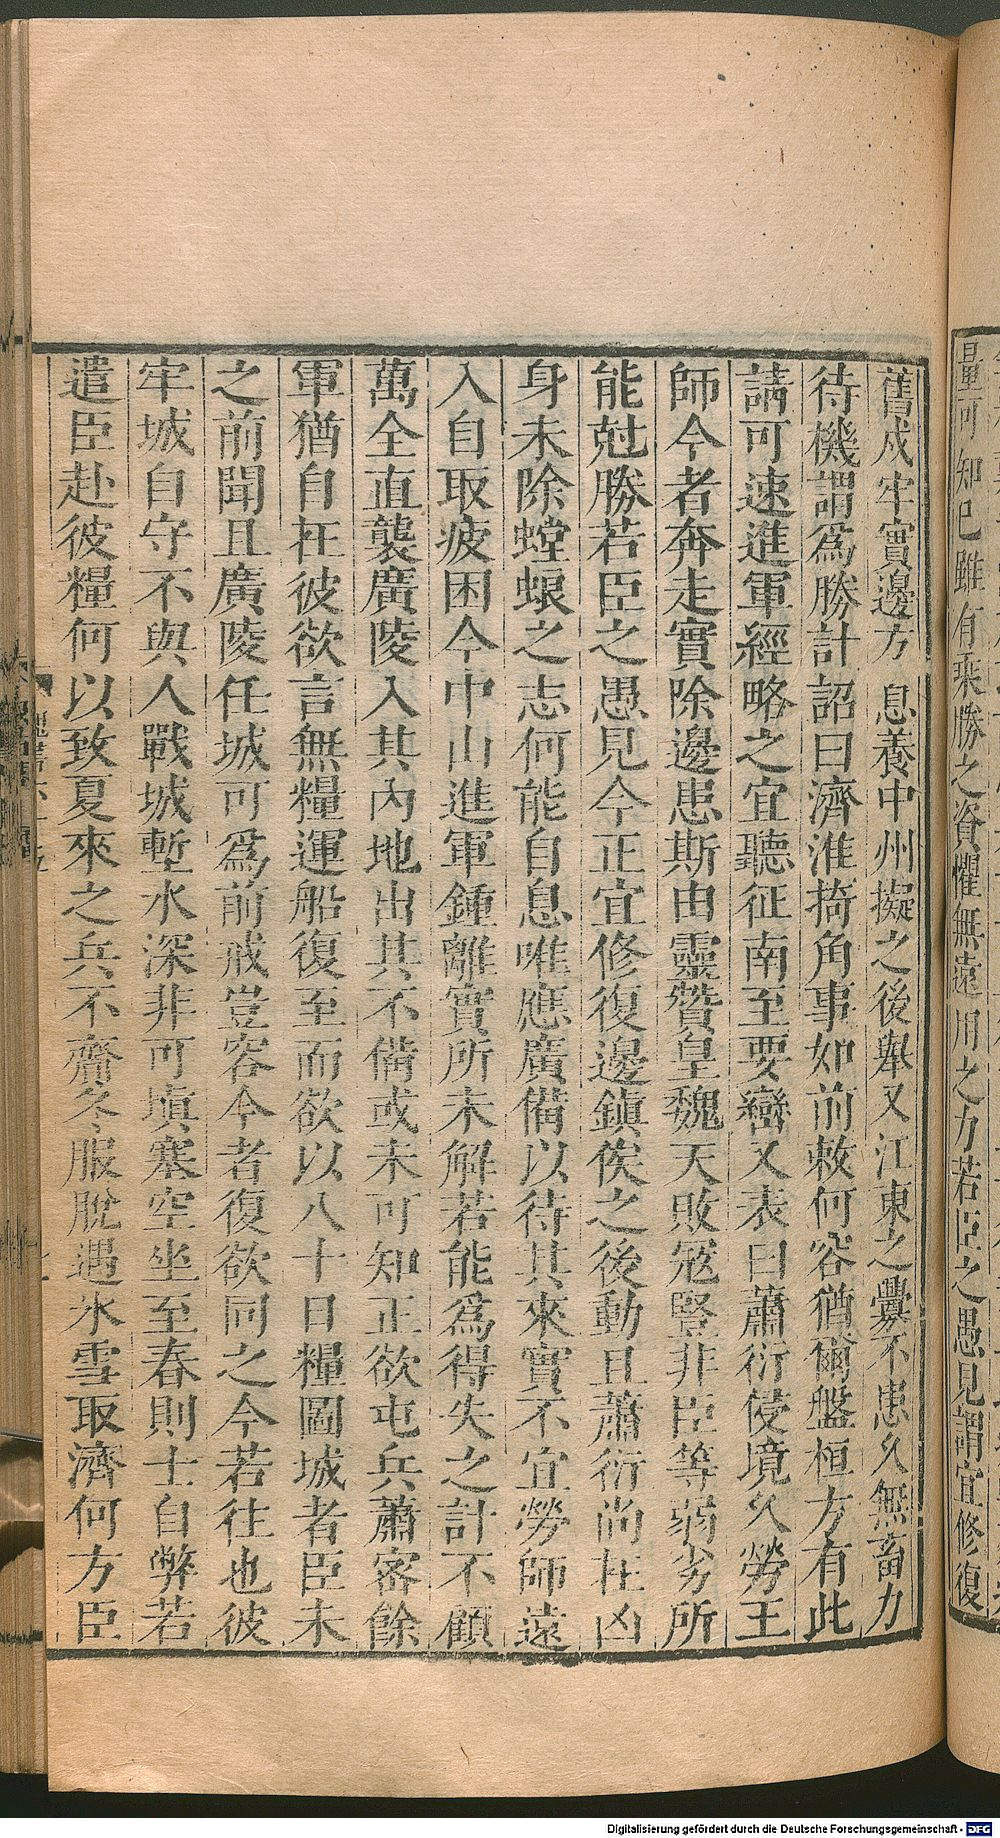 量可知已雖有乘勝之資懼無遠用之力若臣之愚見謂宜修復
舊戍牢實邊方息養中州擬之後舉又江東之釁不患久無畜力
待機謂爲勝計詔曰濟淮掎角事如前敕何容猶爾盤桓方有此
請可速進軍經略之宜聽征南至要巒又表曰蕭衍侵境久勞王
師今者奔走實除邊患斯由靈贊皇魏天敗寇豎非臣等弱劣所
能尅勝若臣之愚見今正宜修復邊鎮俟之後動且蕭衍尚在凶
身未除螳蜋之志何能自息唯應廣備以待其來實不宜勞師遠
入自取疲困今中山進軍鍾離實所未解若能爲得失之計不顧
萬全直襲廣陵入其內地出其不備或未可知正欲屯兵蕭密餘
軍猶自在彼欲言無糧運船復至而欲以八十日糧圖城者臣未
之前聞且廣陵任城可爲前戒豈容今者復欲同之今若往也彼
牢城自守不與人戰城塹水深非可塡塞空坐至春則士自弊若
遣臣赴彼糧何以致夏來之兵不齎冬服脫遇氷雪取濟何方臣
Digitalisierung gefördert durch die Deutsche Forschungsgemeinschaft - DFG